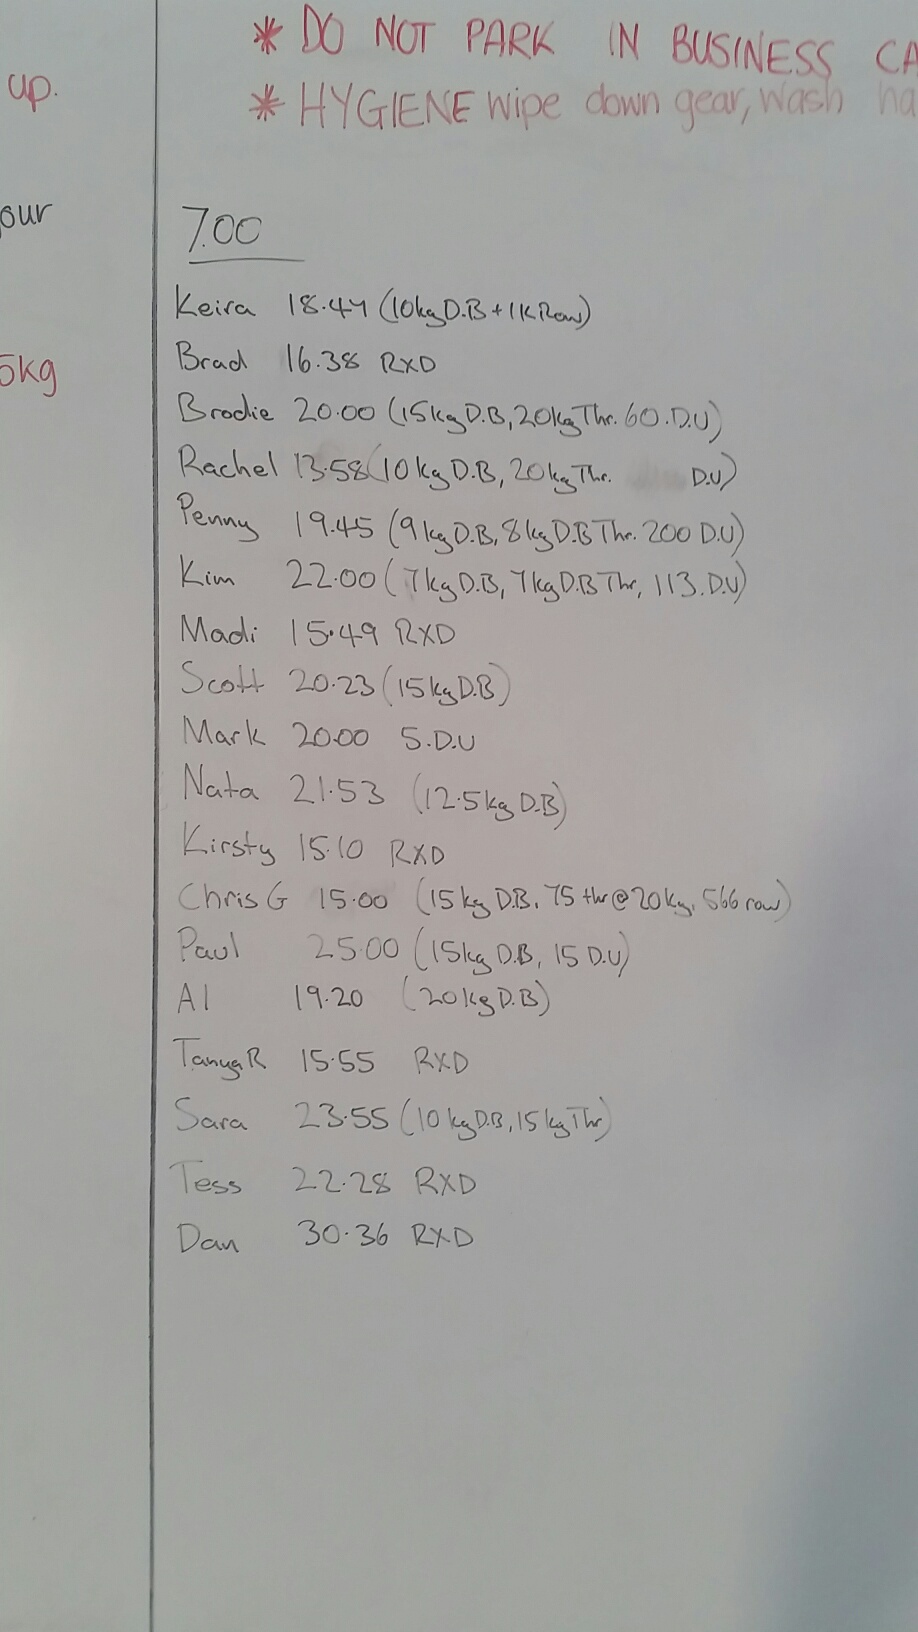 * DO NOT PARK IN BUSINESS CA
up.
* HYGIENE wipe down gear, wash ha
our
7.00
Keira 18.47 (10kg D.B + 1K Row)
5kg
Brad 16.38 RXD
Brodie 20.00 (15kg D.B, 20kg Thr. 60.D.U)
Rachel 13.58 (10kg D.B, 20kg Thr. D.U)
Penny 19.45 (9kg D.B, 8kg D.B Thr. 200 D.U)
Kim 22.00 (7kg D.B, 7kg D.B Thr, 113.D.U)
Madi 15.49 RXD
Scott 20.23 (15kg D.B)
Mark 20.00 S.D.U
Nata 21.53 (12.5kg D.B)
Kirsty 15.10 RXD
Chris G 15.00 (15kg D.B, 75 thr @ 20kg, 566 row)
Paul 25.00 (15kg D.B, 15 D.U)
Al 19.20 (20kg D.B)
Tanya R 15.55 RXD
Sara 23.55 (10kg D.B, 15kg Thr)
Tess 22.28 RXD
Dan 30.36 RXD